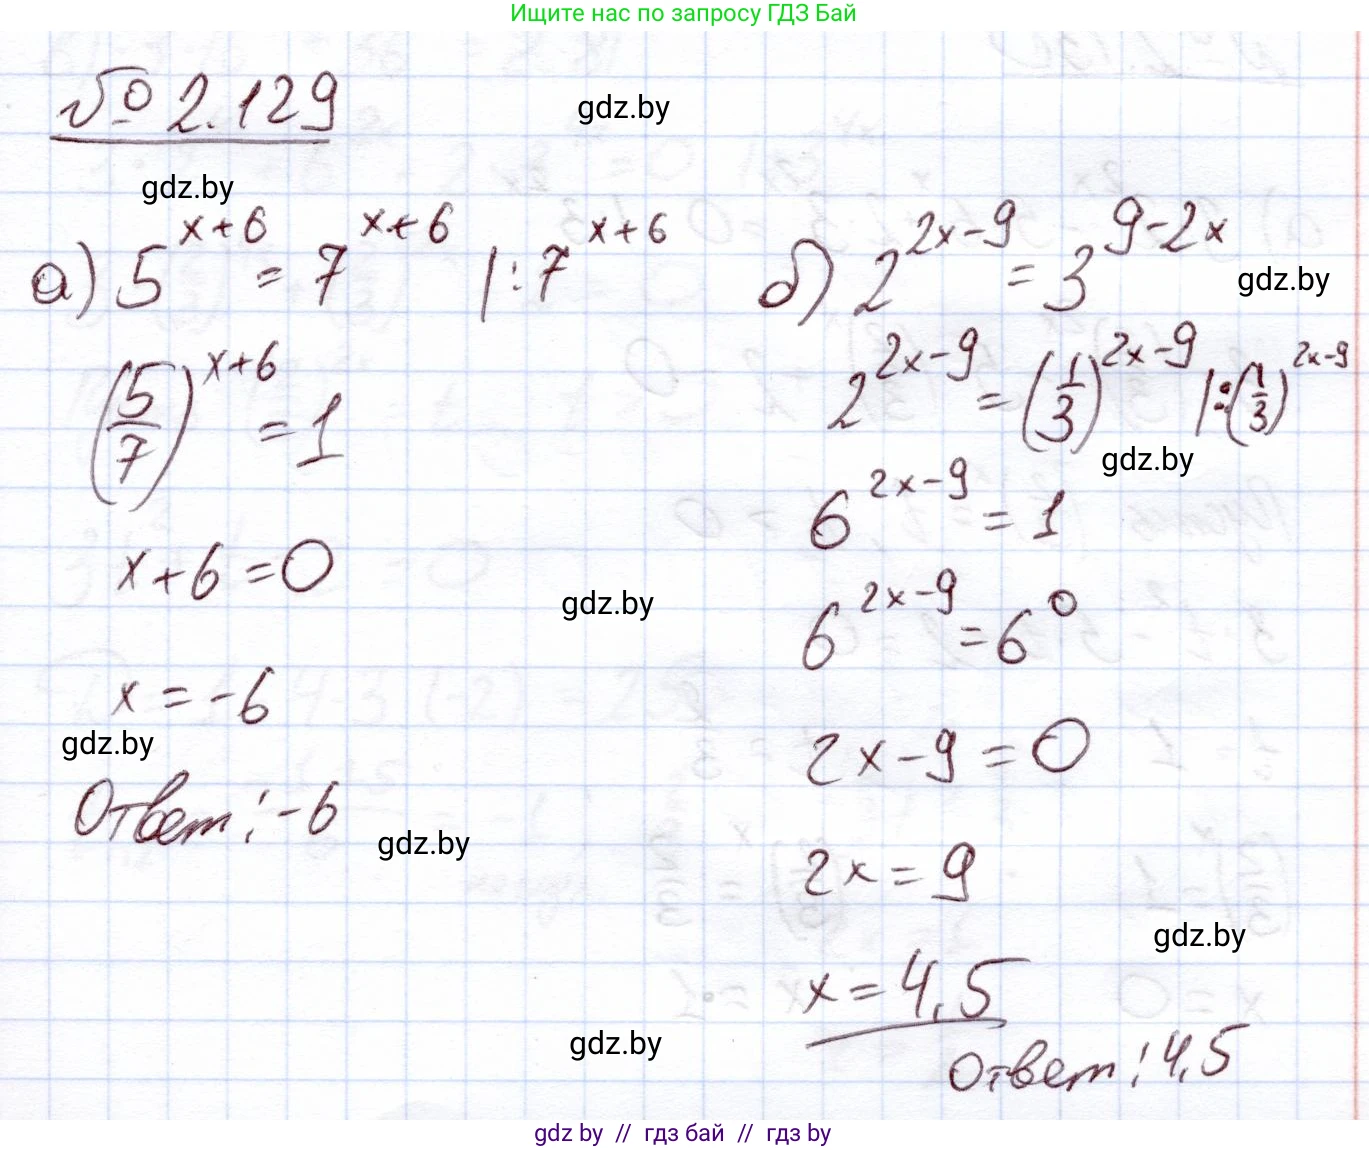 Ищите нас по запросу ГДЗ Бай
№ 2.129
gdz.by
gdz.by
а) 5^(x+6) = 7^(x+6) |:7^(x+6)
(5/7)^(x+6) = 1
x+6=0
gdz.by
x = -6
gdz.by
Ответ: -6
gdz.by
б) 2^(2x-9) = 3^(9-2x)
gdz.by
2^(2x-9) = (1/3)^(2x-9) |:(1/3)^(2x-9)
gdz.by
6^(2x-9) = 1
6^(2x-9) = 6^0
2x-9=0
2x=9
gdz.by
x=4,5
gdz.by
Ответ: 4,5
gdz by // гдз бай // гдз by